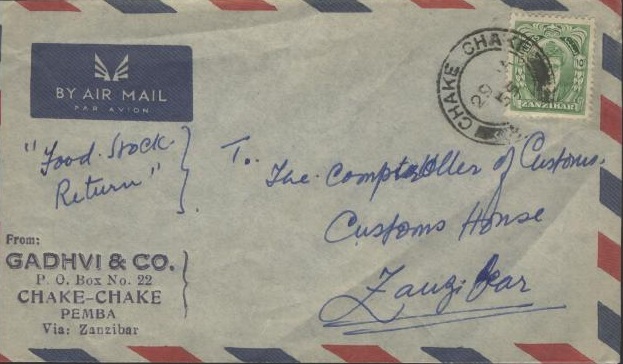 BY AIR MAIL
PAR AVION
CHAKE CHAKE
29
10
ZANZIBAR
"Food Stock
Return"
To.
The Comptroller of Customs.
Customs House
Zanzibar
From:
GADHVI & CO.
P. O. Box No. 22
CHAKE-CHAKE
PEMBA
Via: Zanzibar